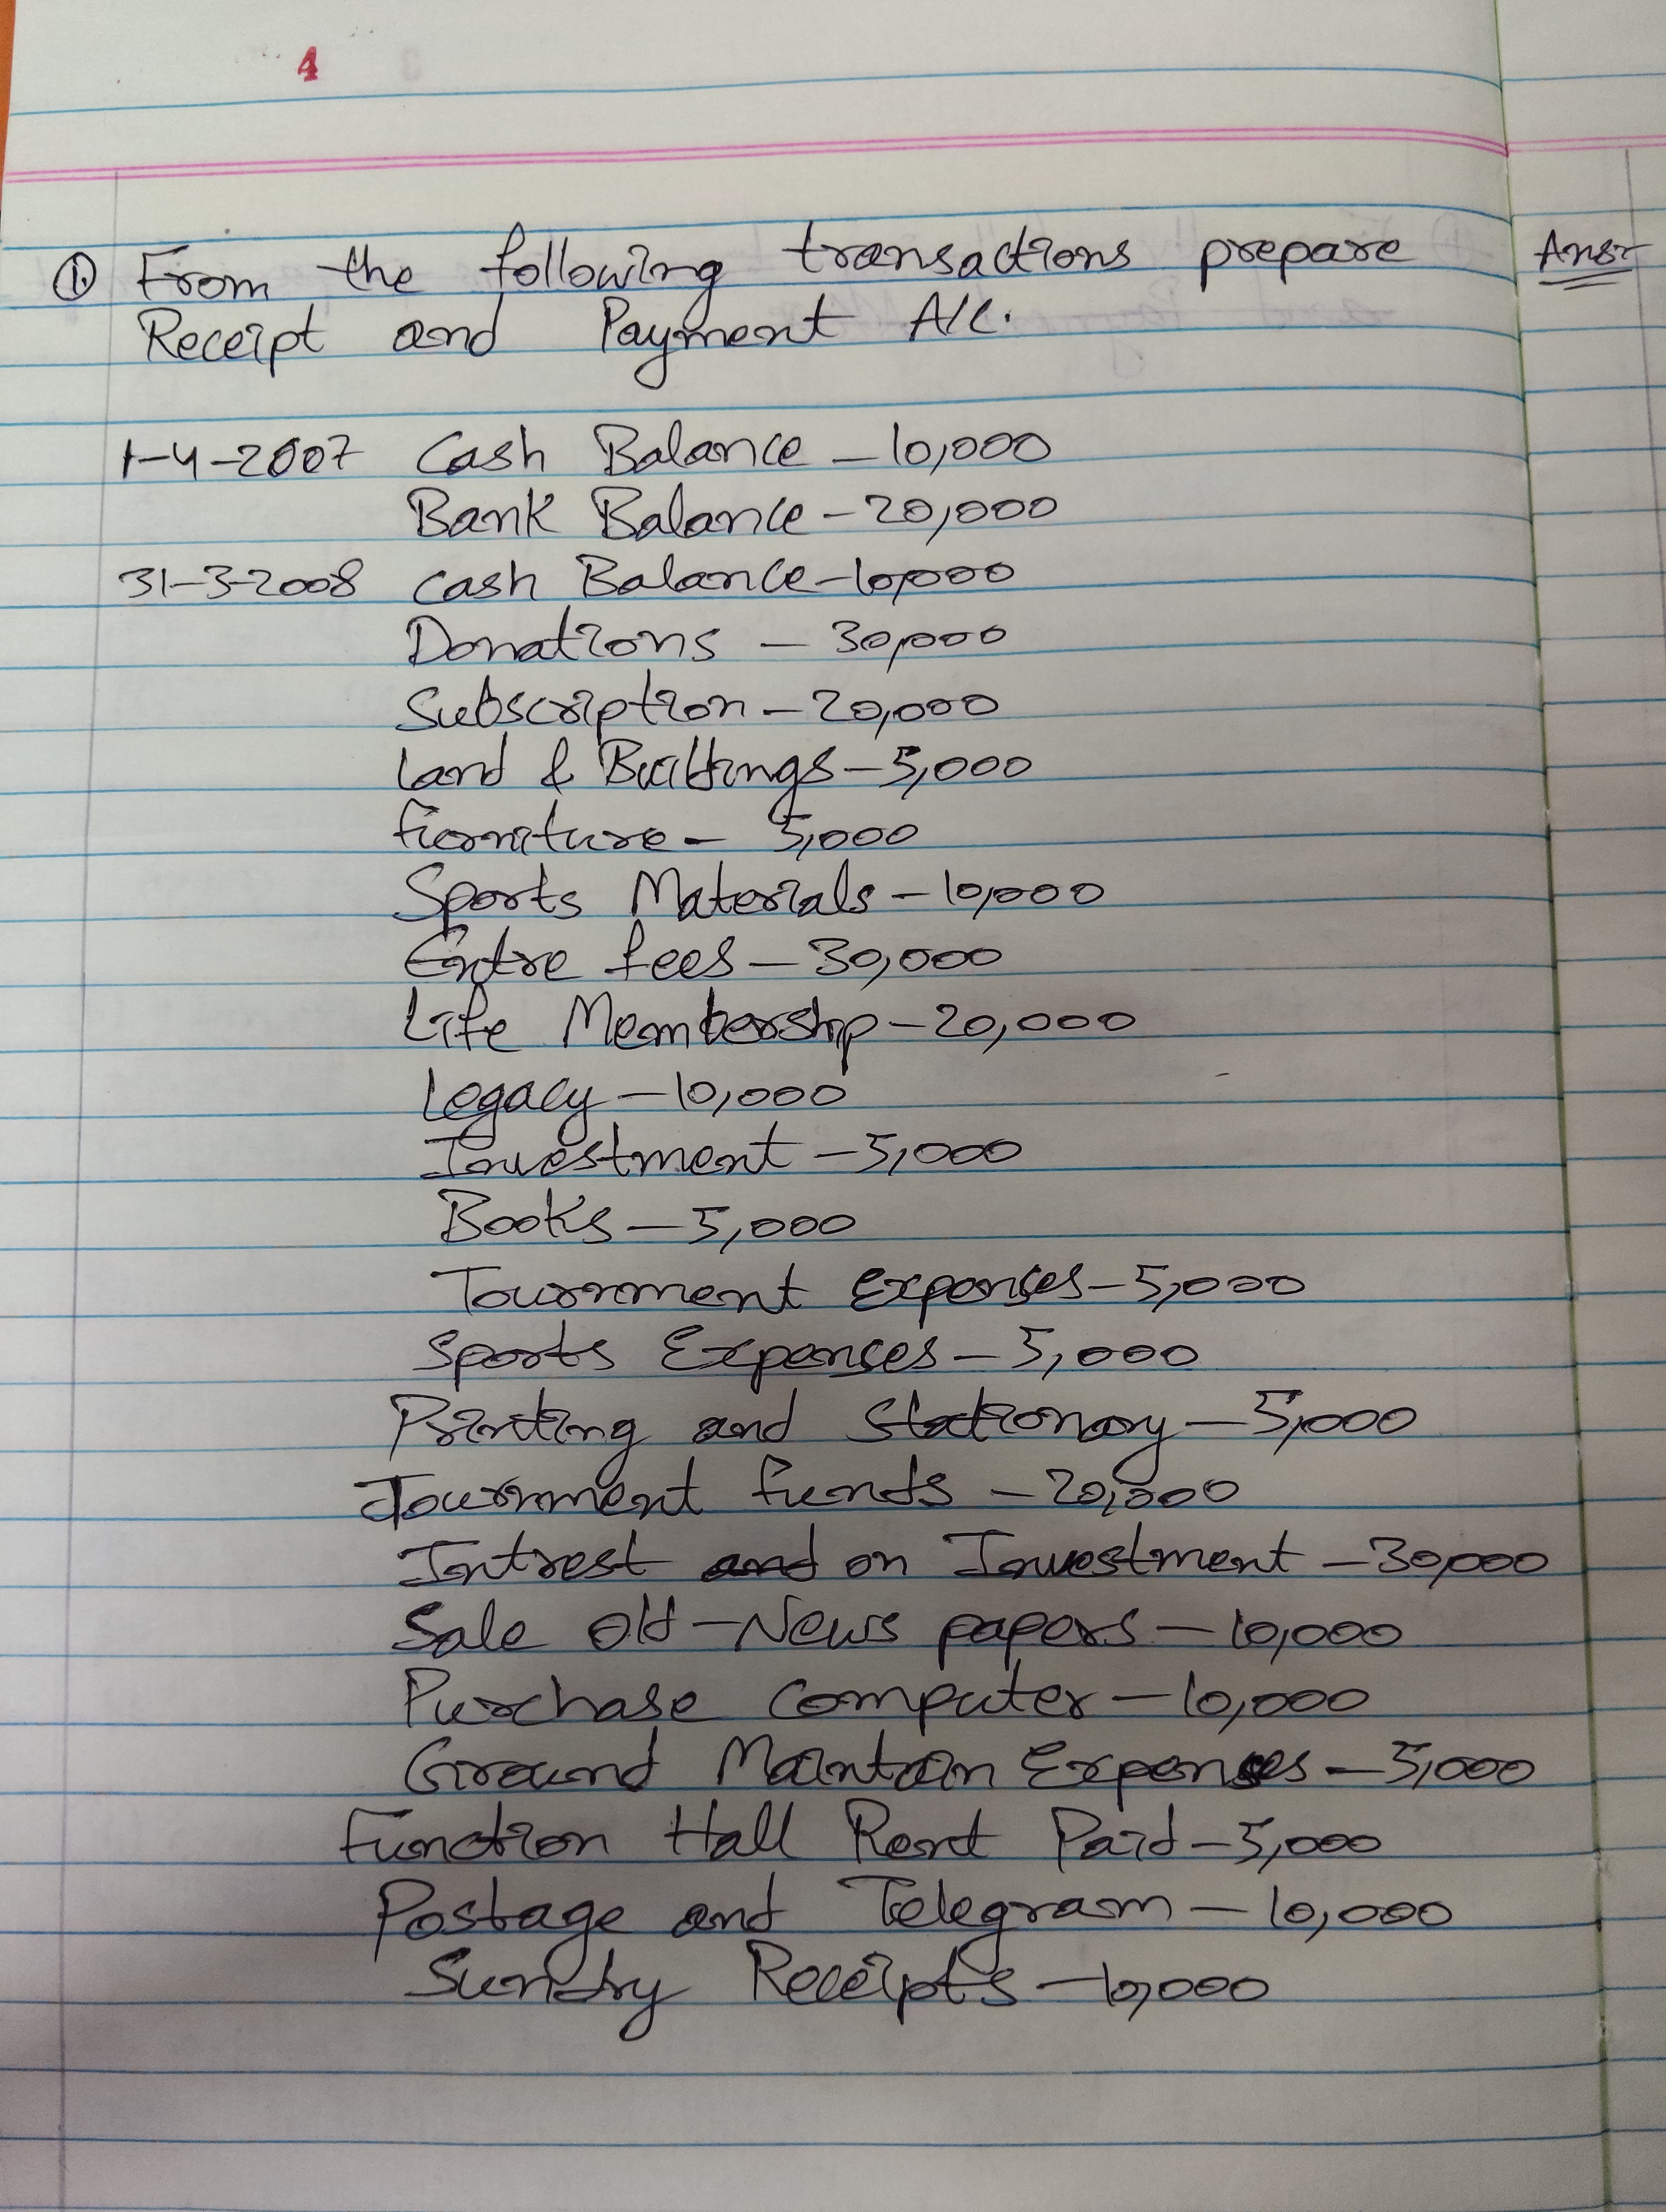 4
① From the following transactions prepare
Receipt and Payment A/c.
Ans:
1-4-2007 Cash Balance - 10,000
Bank Balance - 20,000
31-3-2008 Cash Balance - 10,000
Donations - 30,000
Subscription - 20,000
Land & Buildings - 5,000
Furniture - 5,000
Sports Materials - 10,000
Entre fees - 30,000
Life Membership - 20,000
Legacy - 10,000
Investment - 5,000
Books - 5,000
Tournment Expenses - 5,000
Sports Expenses - 5,000
Printing and Stationary - 5,000
Tournment funds - 20,000
Intrest and on Investment - 30,000
Sale old - News papers - 10,000
Purchase Computer - 10,000
Ground Maintain Expenses - 5,000
Function Hall Rent Paid - 5,000
Postage and Telegram - 10,000
Sundry Receipts - 10,000